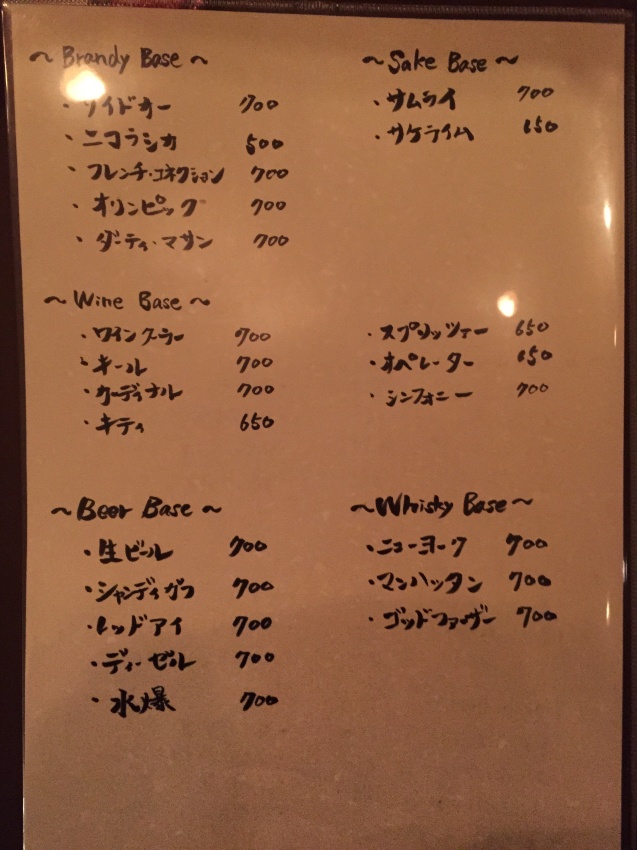 ～Brandy Base～
・サイドカー 700
・ニコラシカ 500
・フレンチ・コネクション 700
・オリンピック 700
・ダーティ・マザー 700
～Sake Base～
・サムライ 700
・サケライム 650
～Wine Base～
・ワインクーラー 700
・キール 700
・カーディナル 700
・キティ 650
・スプリッツァー 650
・オペレーター 650
・シンフォニー 700
～Beer Base～
・生ビール 700
・シャンディガフ 700
・レッドアイ 700
・ディーゼル 700
・水爆 700
～Whisky Base～
・ニューヨーク 700
・マンハッタン 700
・ゴッドファーザー 700